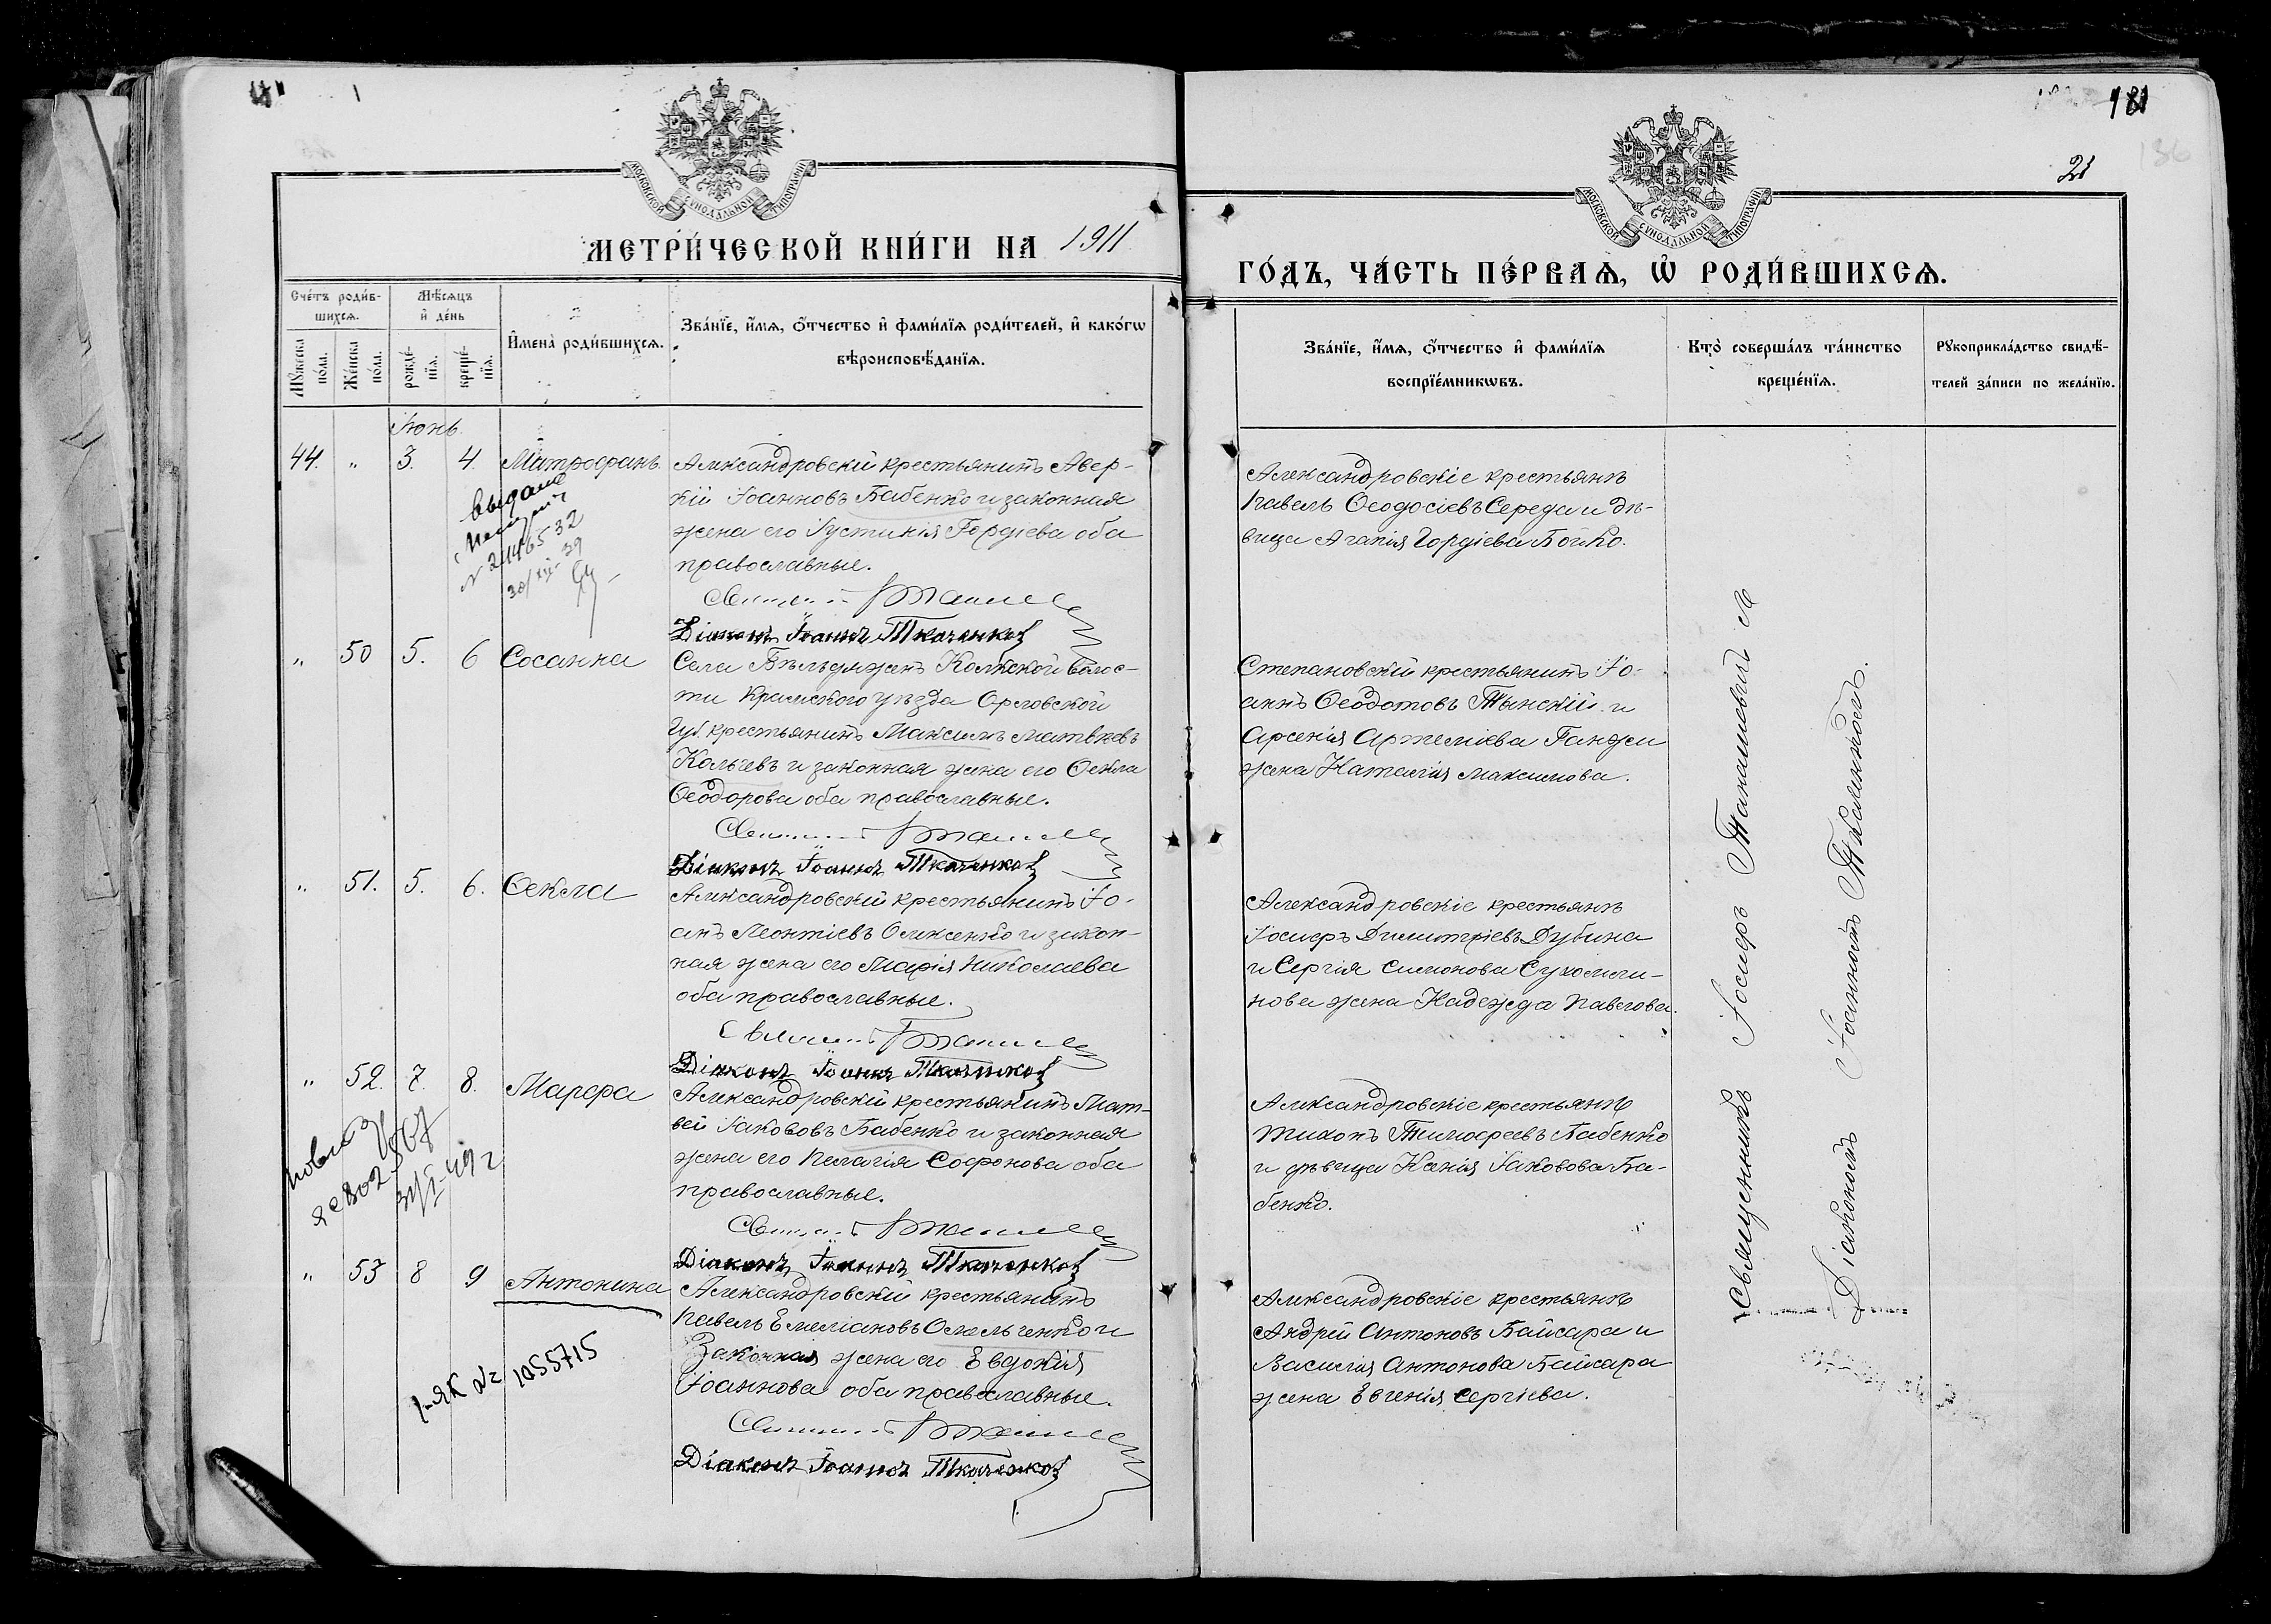 181
21
136
МОСКОВСКОЙ СѴНОДАЛЬНОЙ ТИПОГРАФІИ
МОСКОВСКОЙ СѴНОДАЛЬНОЙ ТИПОГРАФІИ
МЕТРИ́ЧЕСКОЙ КНИ́ГИ НА 1911
ГО́ДЪ, ЧА́СТЬ ПЕ́РВАѦ, Ѡ҆ РОДИ́ВШИХСѦ.
Сче́тъ роди́в-
шихсѧ.
Мꙋ́жеска по́ла.
Же́нска по́ла.
Мѣ́сѧцъ
и҆ де́нь
рожде́-
нїѧ.
креще́-
нїѧ.
И҆мена̀ роди́вшихсѧ.
Зва́нїе, и҆́мѧ, ѻ҆́тчество и҆ фами́лїѧ роди́телей, и҆ како́гѡ
вѣроисповѣ́данїѧ.
Зва́нїе, и҆́мѧ, ѻ҆́тчество и҆ фами́лїѧ
воспрїе́мникѡвъ.
Кто̀ соверша́лъ та́инство
креще́нїѧ.
Рꙋкоприкла́дство свидѣ́-
телей за́писи по жела́нїю.
Іюнь
44. " 3. 4. Митрофанъ.
Александровскій крестьянинъ Авер-
кій Іоанновъ Бабенко и законная
жена его Іустинія Гордіева оба
православные.
Діаконъ Іоаннъ Ткаченко
Александровскіе крестьяне
Павелъ Ѳеодосіевъ Середа и дѣ-
вица Агапія Гордіева Бойко.
выдано
№ 2446532
30/XII-39
" 50 5. 6 Сосанна
Села Колкской волос-
ти Кромского уѣзда Орловской
губ. крестьянинъ Максимъ Матвѣевъ
Кольчевъ и законная жена его Ѳекла
Ѳеодорова оба православные.
Діаконъ Іоаннъ Ткаченко
Степановскій крестьянинъ Іо-
аннъ Ѳеодотовъ Тынскій и
Арсенія Артеміева Ганжи
жена Наталія Максимова.
" 51. 5. 6. Ѳекла
Александровскій крестьянинъ Іо-
анъ Леонтіевъ Олексенко и закон-
ная жена его Марія Николаева
оба православные.
Діаконъ Іоаннъ Ткаченко
Александровскіе крестьяне
Іосифъ Димитріевъ Дубина
и Сергія Симонова Сухомли-
нова жена Надежда Павлова.
" 52. 7. 8. Марфа
Александровскій крестьянинъ Мат-
вей Іакововъ Бабенко и законная
жена его Пелагія Софонова оба
православные.
Діаконъ Іоаннъ Ткаченко
Александровскіе крестьяне
Тихонъ Тимофеевъ Бабенко
и дѣвица Ксенія Іаковова Ба-
бенко.
31/I-49 г
" 53 8 9 Антонина
Александровскій крестьянинъ
Павелъ Емеліановъ Омельченко и
Законная жена его Евдокія
Іоаннова оба православные.
Діаконъ Іоаннъ Ткаченко
Александровскіе крестьяне
Андрей Антоновъ Байсара и
Василія Антонова Байсара
жена Евгенія Сергіева.
1-ЯК № 1055715
Священникъ Іосифъ
Діаконъ Іоаннъ Ткаченко.